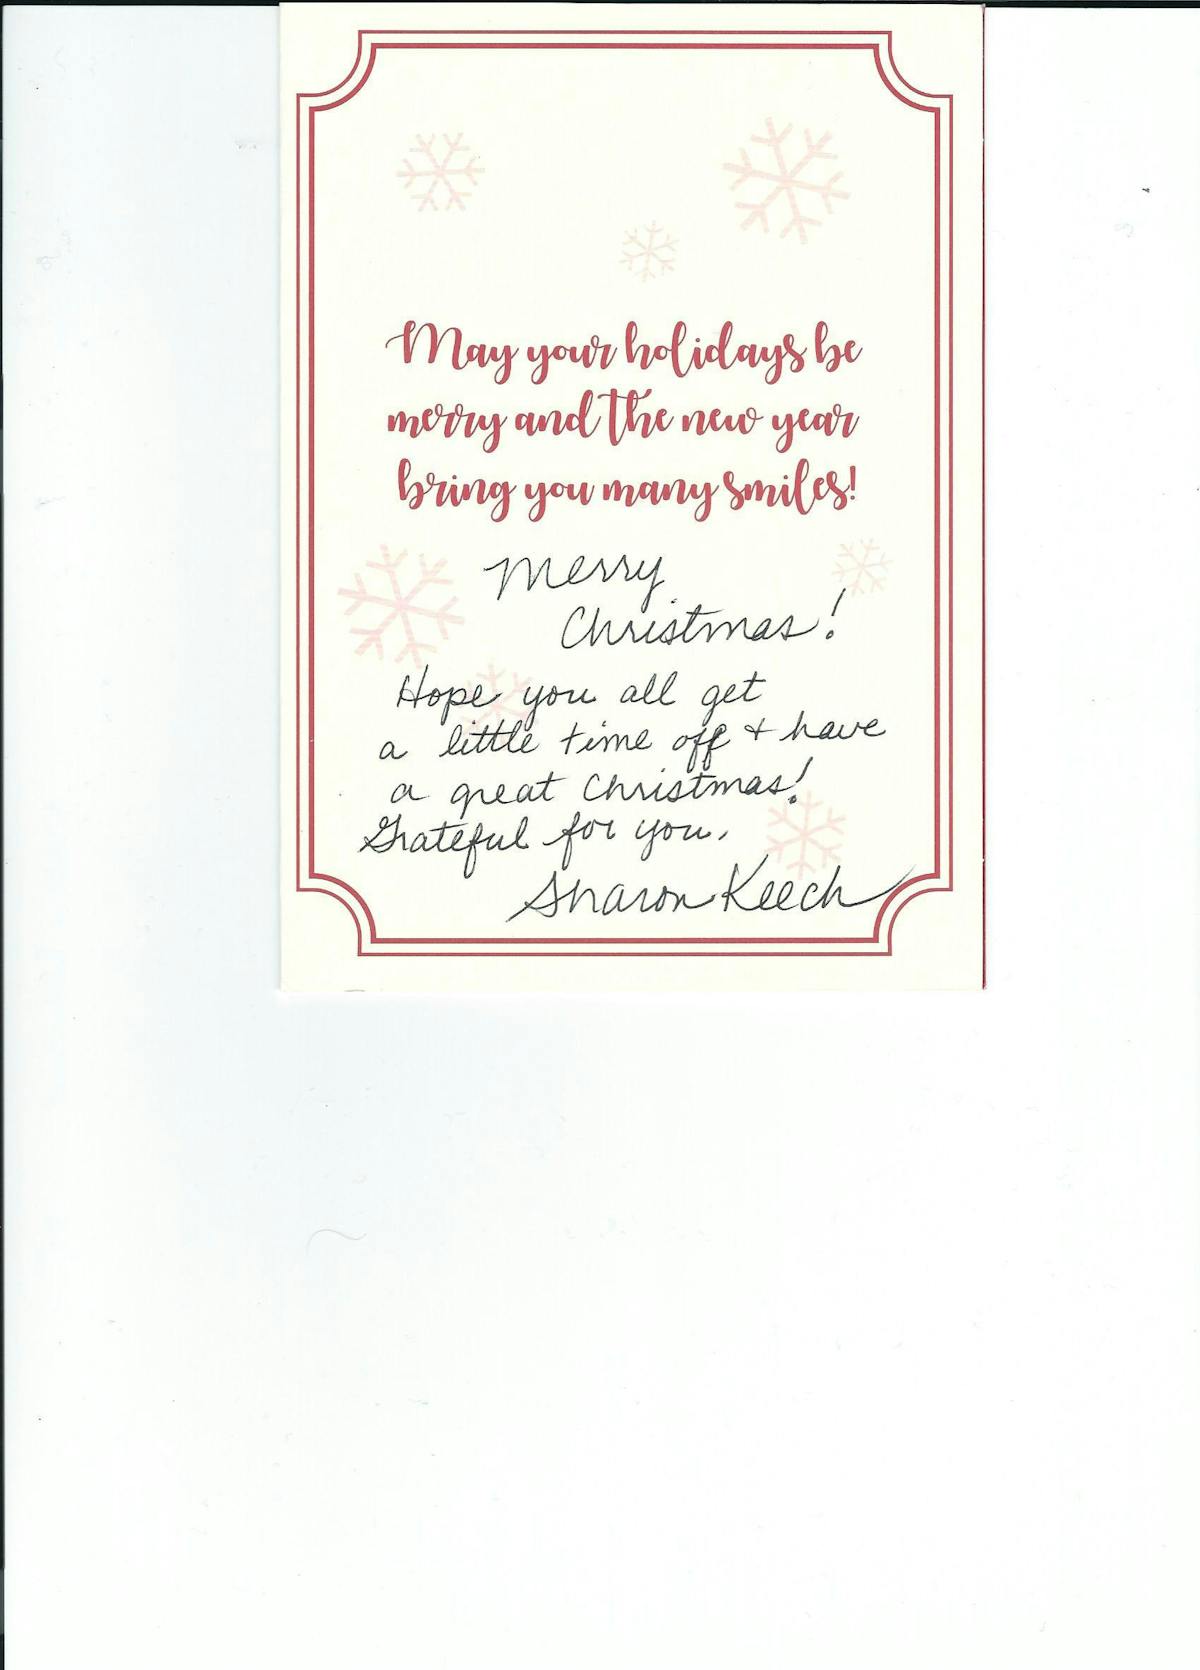 May your holidays be
merry and the new year
bring you many smiles!
Merry
Christmas!
Hope you all get
a little time off + have
a great Christmas!
Grateful for you,
Sharon Keech